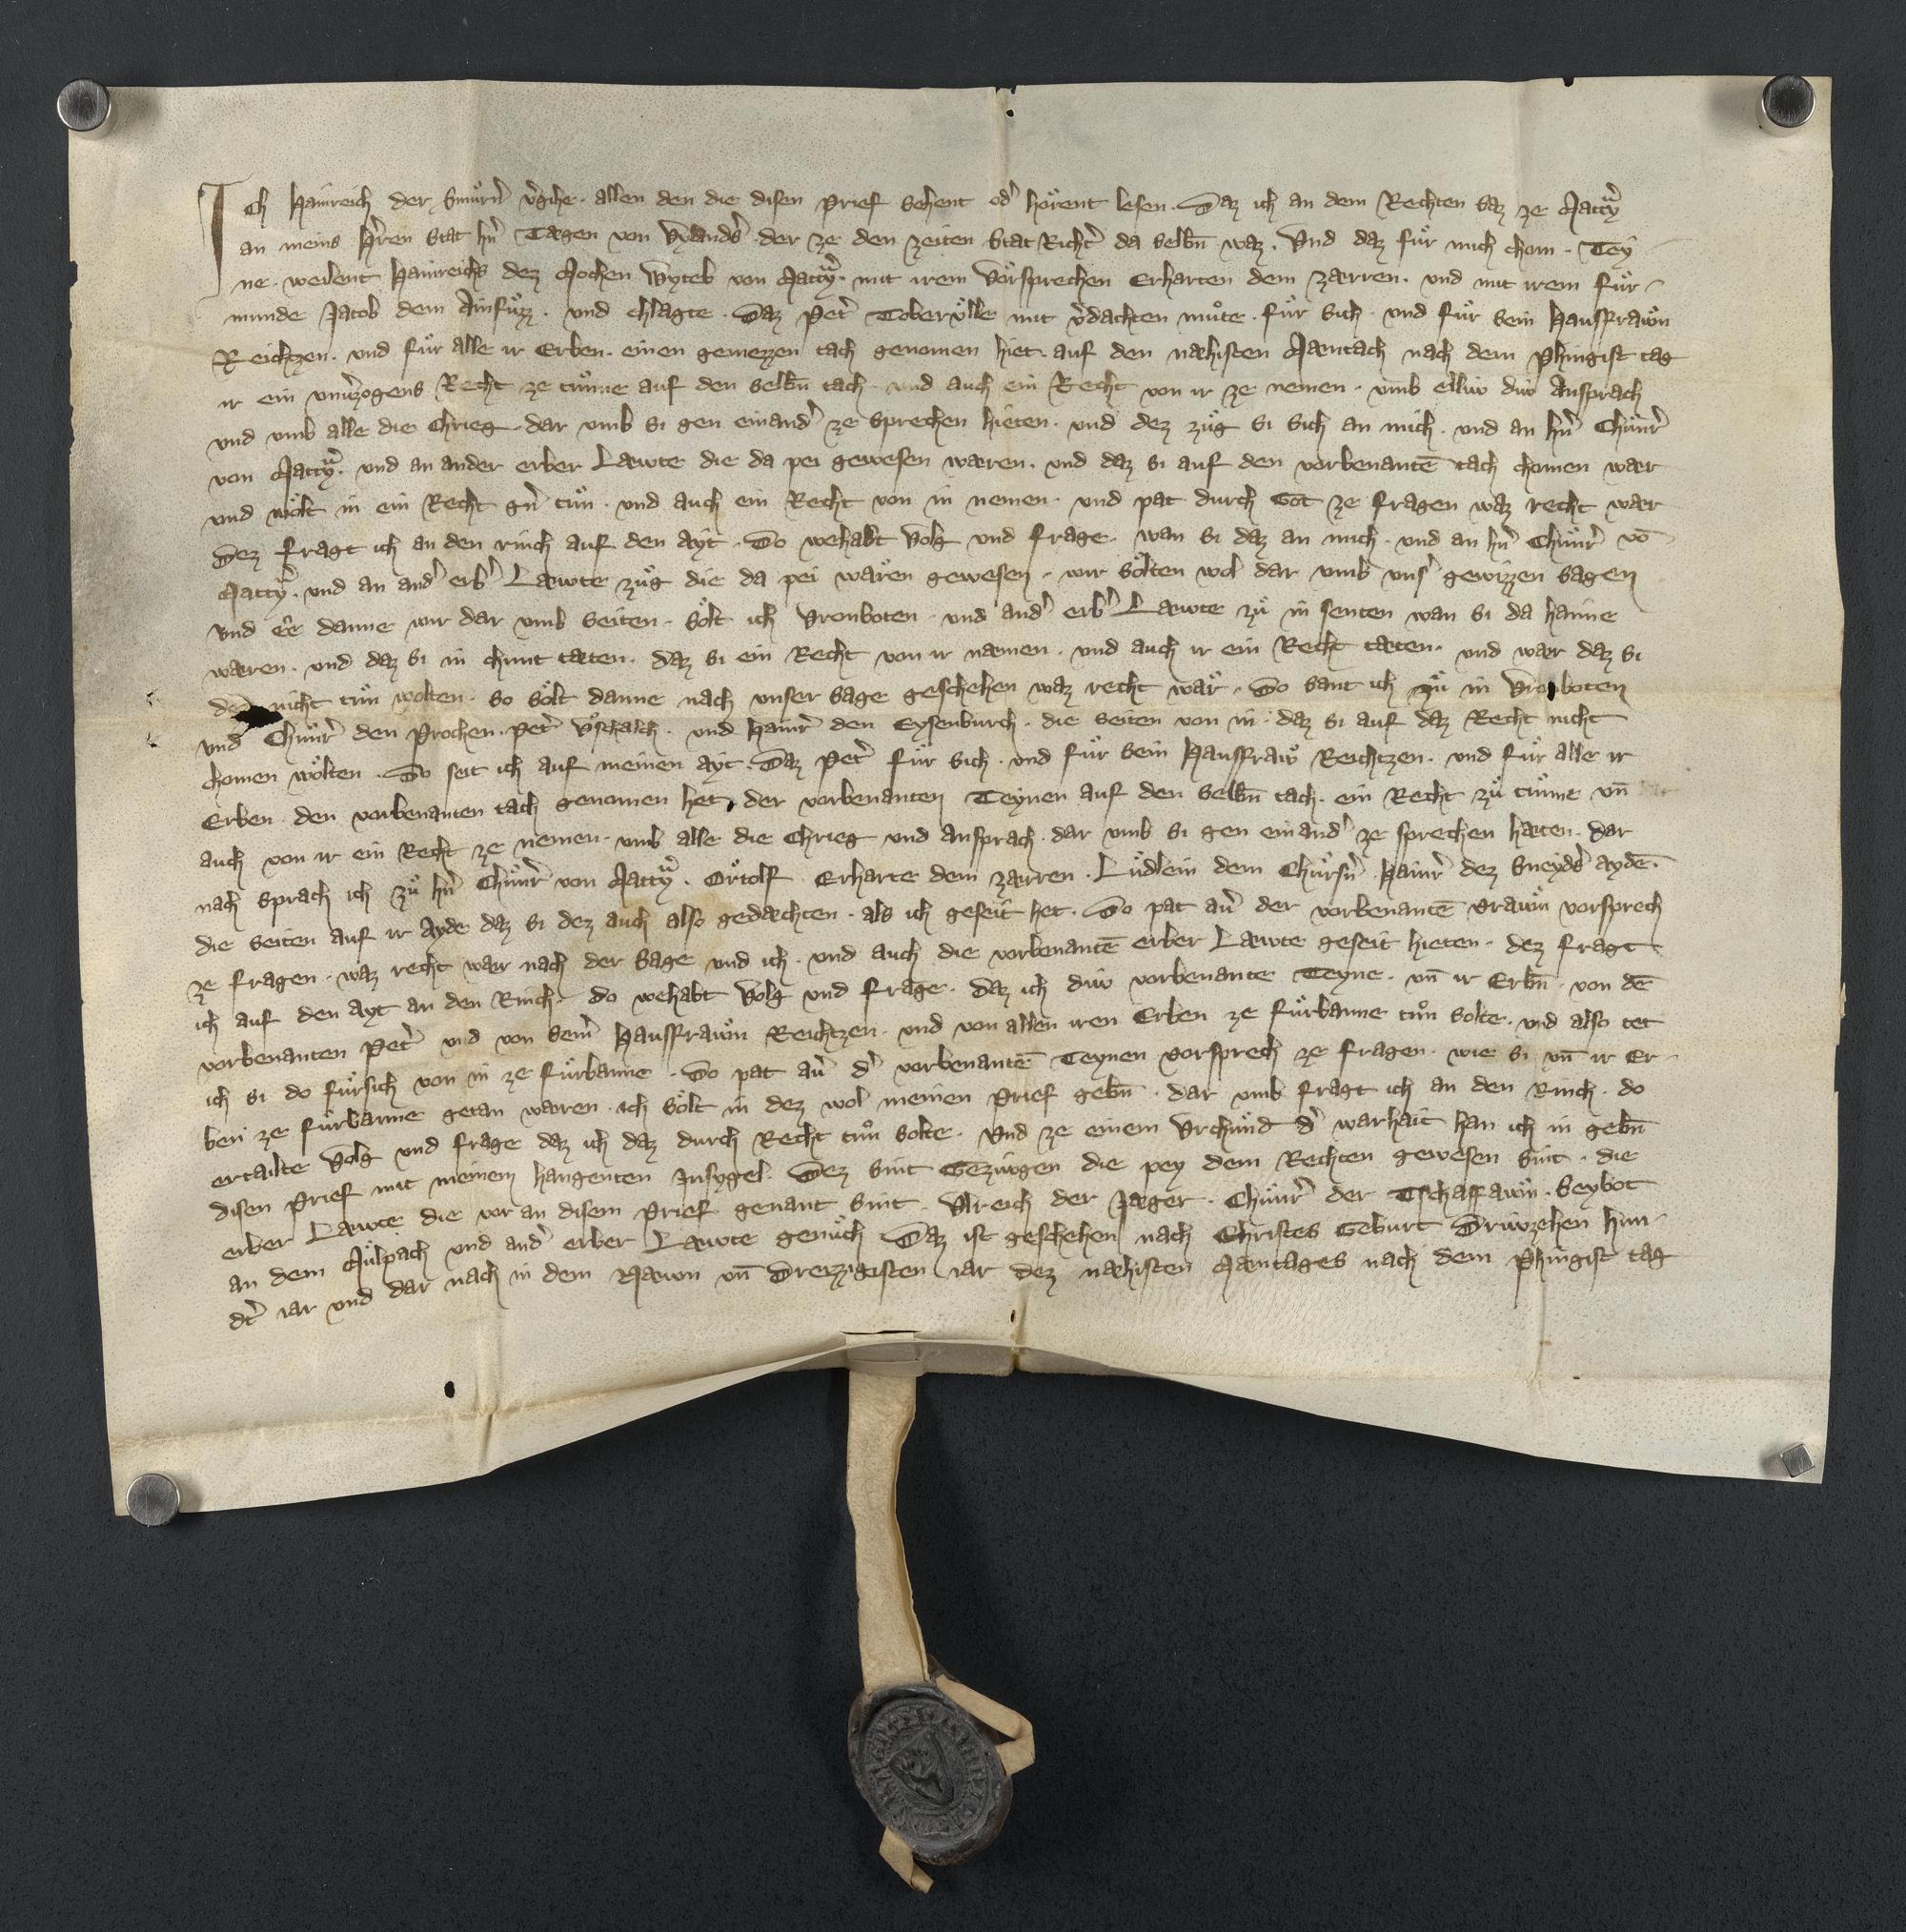 Ich Hainreich der Smuͤrn̄ v̓gihe · allen den die disen Prief sehent od̓ hoͤrent lesen · Daz ich an dem Rechten saz ze Matrͣy
an meins Hr̓ren stat hn̓ Tægen von Vyllandˢ · der ze den zeiten Stat Richt̓ da selbn̄ waz · Und daz fuͤr mich chom · Tey
ne · weilent Hainreichs dez Mochen Wyteb von Matrͣy · mit irem Voͤrsprechen Erharten dem Zærren · und mit irem fuͤr
munde Jacob dem Ainfuͤzz · und chlagte · Daz Pet̓ Tobervͤlle mit v̓dachten muͦte · fuͤr sich · und fuͤr sein Hausfrawͤn
Reichtzen · und fuͤr alle ir Erben · einen gemezzen tach genomen hiet · auf den næhisten Mæntach nach dem Phingist tag
ir ein unv̓zogens Recht ze tuͦnne auf den selbn̄ tach · und auch ein Recht von ir ze nemen · umb elliw diw Ansprach
und umb alle die Chrieg · dar umb si gen einand̓ ze sprechen hieten · und dez zuͤg si sich an mich · und an hn̓ Chuͤnr̓
von Matrͣy · und an ander erber Læwte die da pei gewesen waren · und daz si auf den vorbenantē tach chomen wær
und woͤlt in ein Recht gn̓ tuͦn · und auch ein Recht von in nemen · und pat durch Got ze fragen waz recht wær
Dez fragt ich an den rinch auf den ayt · Do wehabt Volg und frage · wan si daz an mich · und an hn̓ Chuͤnr̓ vō
Matrͣy · und an and̓ erb̓ Læwte zuͤg die da pei wæren gewesen · wir soͤlten wol dar umb uns̓ gewizzen sagen
und eͤe danne wir dar umb seiten · soͤlt ich Vronboten · und and̓ erb̓ Læwte zuͤ in senten wan si da haime
wæren · und daz si in chunt tæten · daz si ein Recht von ir næmen · und auch ir ein Recht tæten · und wær daz si
dez nicht tuͦn wolten · so soͤlt danne nach unser sage geschehen waz recht wær · Do sant ich zuͤ in Vronboten
und Chuͤnr̓ den Prochen · Pet̓ Voͤschalch · und Hainr̓ den Eysenburch · die seiten von in · daz si auf daz Recht nicht
chomen woͤlten · Do seit ich auf meinen ayt · Daz Pet̓ fuͤr sich · und fuͤr sein Hausfrawͤ Reichtzen · und fuͤr alle ir
Erben · den vorbenanten tach genomen het, der vorbenanten Teynen auf den selbn̄ tach · ein Recht zuͤ tuͦnne un̄
auch von ir ein Recht ze nemen · umb alle die Chrieg und ansprach · dar umb si gen einand̓ ze sprechen hæten · Dar
nach sprach ich zuͤ hn̓ Chuͤnr̓ von Matrͣy · Oͤrtolf · Erharte dem Zærren · Luͤdlein dem Chuͤrsn̓ · Hainr̓ dez Sneydˢ aydē ·
die seiten auf ir Ayde daz si dez auch also gedæchten · als ich geseit het · Do pat av̓ der vorbenantē Vrawͤn vorsprech
ze fragen · waz recht wær nach der sage und ich · und auch die vorbenantē erber Læwte geseit hieten · dez fragt
ich auf den ayt an den Rinch · do wehabt Volg und frage · daz ich diw vorbenante Teyne · un̄ ir Erbn̄ · von dē
vorbenanten Pet̓ und von sein̓ Hausfrawͤn Reichtzen · und von allen iren Erben ze fuͤrbanne tuͦn solte · und also tet
ich si do fuͤrsich von in ze fuͤrbanne · Do pat av̓ d̓ vorbenantē Teynen Vorsprech ze fragen · wie si un̄ ir Er
ben ze fuͤrbanne getan wæren · ich soͤlt in dez wol meinen Prief gebn̄ · dar umb fragt ich an den Rinch · do
ertailte Volg und frage daz ich daz durch Recht tuͦn solte · Und ze einem Vrchuͤnd d̓ warhait han ich in gebn̄
disen Prief mit meinem hangenten Insygel · Dez sint Gezuͤwgen die pey dem Rechten gewesen sint · die
erber Læwte die vor an disem Prief genant sint · Vlreich der Jæger · Chuͤnr̓ der Tschaffawͤn · Seybot
an dem Muͤlpach und and̓ erber Læwte genuͤch Daz ist geschehen nach Christes Geburt Driwzehen hun
dt̓ iar und dar nach in dem Næwn un̄ Dreizzigisten iar dez næhisten Mæntages nach dem Phingist tag